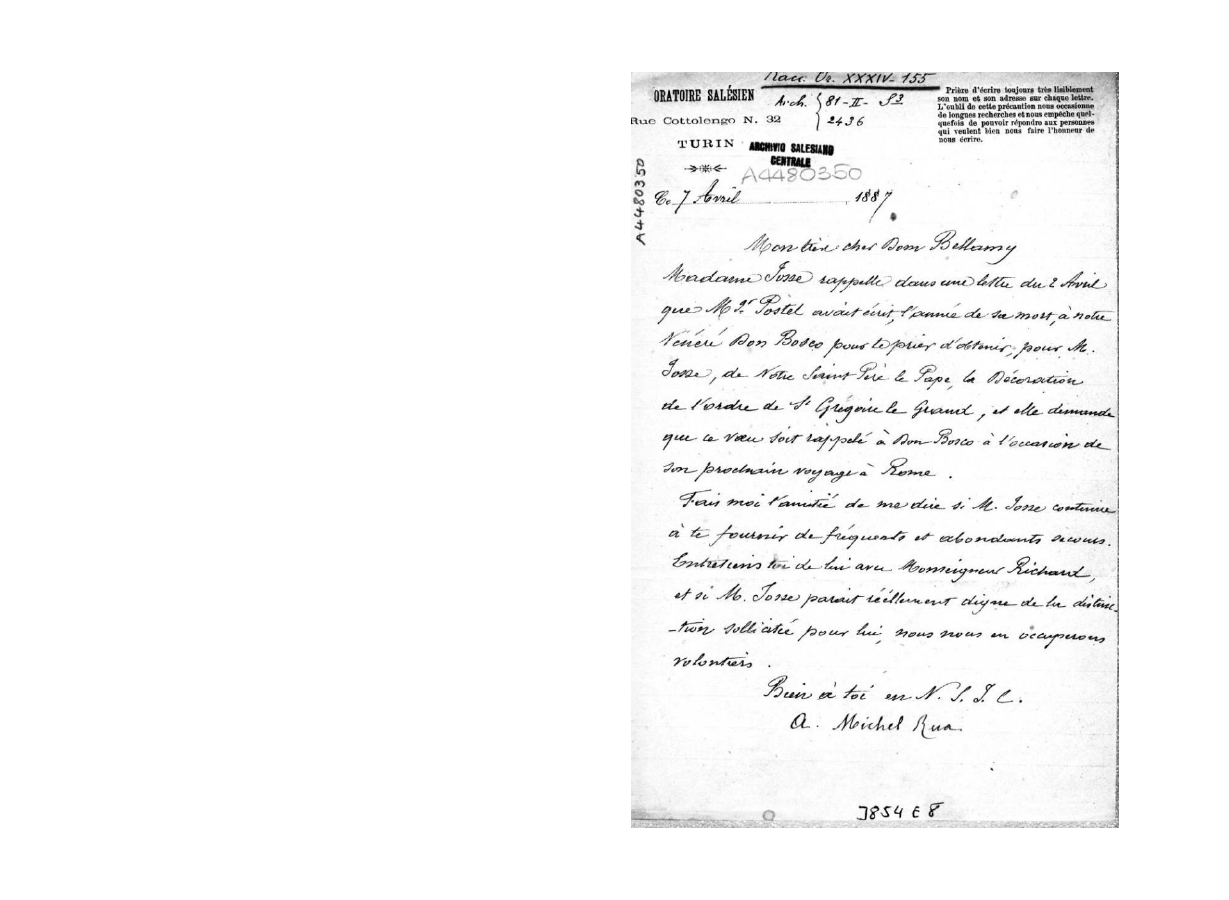 Racc. Or. XXXIV-155
ORATOIRE SALÉSIEN
Rue Cottolengo N. 32
TURIN
Arch. 81-II- S3
2436
ARCHIVIO SALESIANO
CENTRALE
A4480350
Prière d'écrire toujours très lisiblement
son nom et son adresse sur chaque lettre.
L'oubli de cette précaution nous occasionne
de longues recherches et nous empêche quel-
quefois de pouvoir répondre aux personnes
qui veulent bien nous faire l'honneur de
nous écrire.
A4480350
Ce 7 Avril 1887
Mon très cher Dom Bellamy
Madame Josse rappelle dans une lettre du 2 Avril
que Mgr Postel avait écrit, l'année de sa mort, à notre
Vénéré Don Bosco pour le prier d'obtenir, pour M.
Josse, de Notre Saint Père le Pape, la Décoration
de l'ordre de St Grégoire le Grand, et elle demande
que ce vœu soit rappelé à Don Bosco à l'occasion de
son prochain voyage à Rome.
Fais moi l'amitié de me dire si M. Josse continue
à te fournir de fréquents et abondants secours.
Entretiens toi de lui avec Monseigneur Richard,
et si M. Josse parait réellement digne de la distinc-
-tion sollicitée pour lui, nous nous en occuperons
volontiers.
Bien à toi en N. S. J. C.
A. Michel Rua
3854 E 8